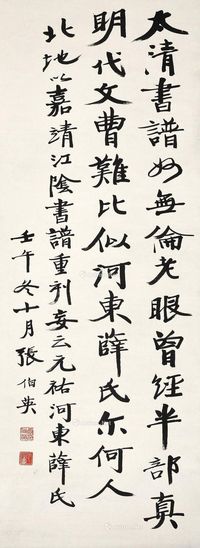 太清書譜妙無倫老眼曾經半部真
明代文曹難比似河東薛氏尒何人
北地以嘉靖江陰書譜重刊妄云元祐河東薛氏
壬午冬十月張伯英